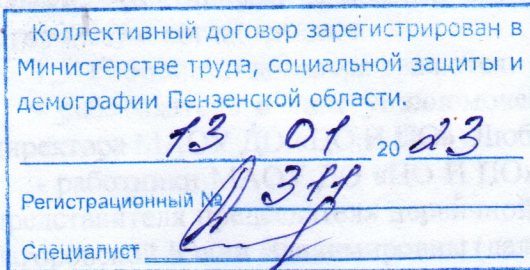 Коллективный договор зарегистрирован в
Министерстве труда, социальной защиты и
демографии Пензенской области.
13 01 20 23
Регистрационный № 311
Специалист